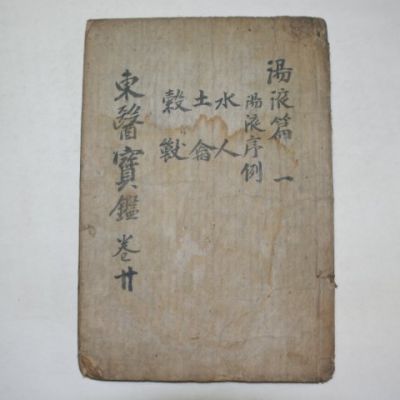 湯液篇 一
湯液序例
水 人
土 禽
穀 獣
東醫寶鑑 卷廿